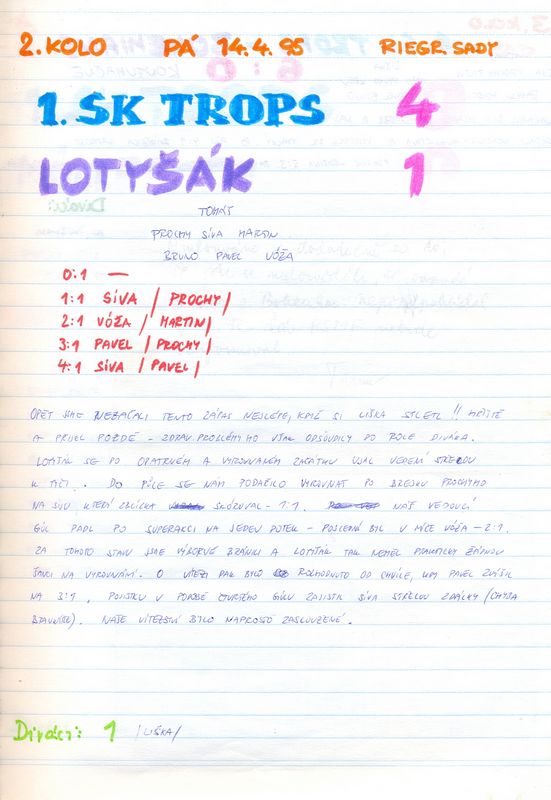 2. KOLO PÁ 14.4.95 RIEGR. SADY
1. SK TROPS 4
LOTYŠÁK 1
TOMÁŠ
PROCHY SÍVA MARTIN
BRUNO PAVEL VÓŽA
0:1 —
1:1 SÍVA / PROCHY /
2:1 VÓŽA / MARTIN /
3:1 PAVEL / PROCHY /
4:1 SÍVA / PAVEL /
OPĚT JSME NEZAČALI TENTO ZÁPAS NEJLÉPE, KDYŽ SI LIŠKA SPLETL !! HŘIŠTĚ
A PŘIJEL POZDĚ – ZDRAV. PROBLÉMY HO VŠAK ODSOUDILY DO ROLE DIVÁKA.
LOTYŠÁK SE PO OPATRNÉM A VYROVNANÉM ZAČÁTKU UJAL VEDENÍ STŘELOU
K TYČI. DO PŮLE SE NÁM PODAŘILO VYROVNAT PO BREJKU PROCHYHO
NA SÍVU, KTERÝ ZBLÍZKA SKÓROVAL – 1:1. NÁŠ VEDOUCÍ
GÓL PADL PO SUPERAKCI NA JEDEN DOTEK – POSLEDNÍ BYL U MÍČE VÓŽA – 2:1.
ZA TOHOTO STAVU JSME VÝBORNĚ BRÁNILI A LOTYŠÁK TAK NEMĚL PRAKTICKY ŽÁDNOU
ŠANCI NA VYROVNÁNÍ. O VÍTĚZI PAK BYLO ROZHODNUTO OD CHVÍLE, KDY PAVEL ZVÝŠIL
NA 3:1. POJISTKU V PODOBĚ ČTVRTÉHO GÓLU ZAJISTIL SÍVA STŘELOU ZDÁLKY (CHYBA
BRANKÁŘE). NAŠE VÍTĚZSTVÍ BYLO NAPROSTO ZASLOUŽENÉ.
Diváci: 1 / LIŠKA /